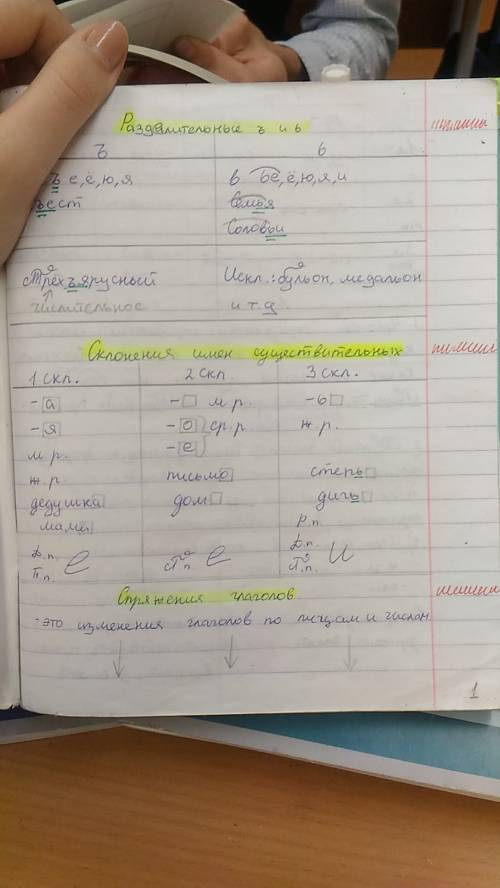 Разделительные ъ и ь
Ъ ь
ъ е, ё, ю, я в ье, ё, ю, я, и
ъест семья
соловьи
трёхъярусный Искл.: бульон, медальон
числительное и т.д
Склонения имен существительных
1 скл. 2 скл. 3 скл.
-а -□ м.р. -ь□
-я -о ср.р ж.р.
м.р. -е
ж.р. письмо степь□
дедушка дом□ дичь□
мама Р.п.
Д.п. е П.п. е Д.п. и
П.п. П.п.
Спряжения глаголов
-это изменения глаголов по лицам и числам
1